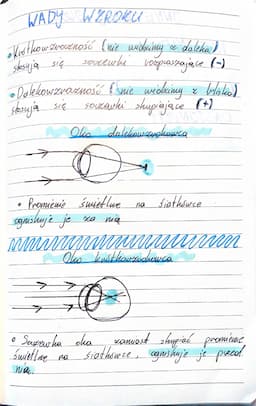 WADY WZROKU
• Krótkowzroczność (nie widzimy z daleka)
stosuje się soczewki rozpraszające (-)
• Dalekowzroczność (nie widzimy z bliska)
stosuje się soczewki skupiające (+)
Oko dalekowzrokowca
• Promienie świetlne na siatkówce
ogniskuje je za nią
Oko krótkowzrokowca
• Soczewka oka zamiast skupiać promienie
świetlne na siatkówce, ogniskuje je przed
nią.